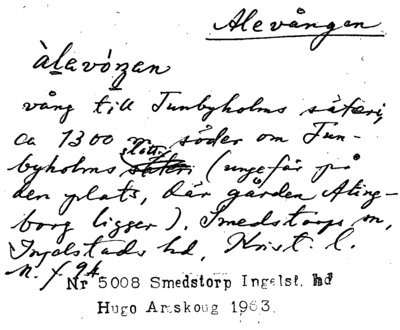 Alevången
àlavóŋan
vång till Tunbyholms säteri,
ca 1300 m söder om Tun-
byholms slott (ungefär på
den plats, där gården Aling-
borg ligger). Smedstorps sn,
Ingelstads hd, Krist. l.
N. f. 94.
Nr 5008 Smedstorp Ingelst. hd
Hugo Areskoug 1963.